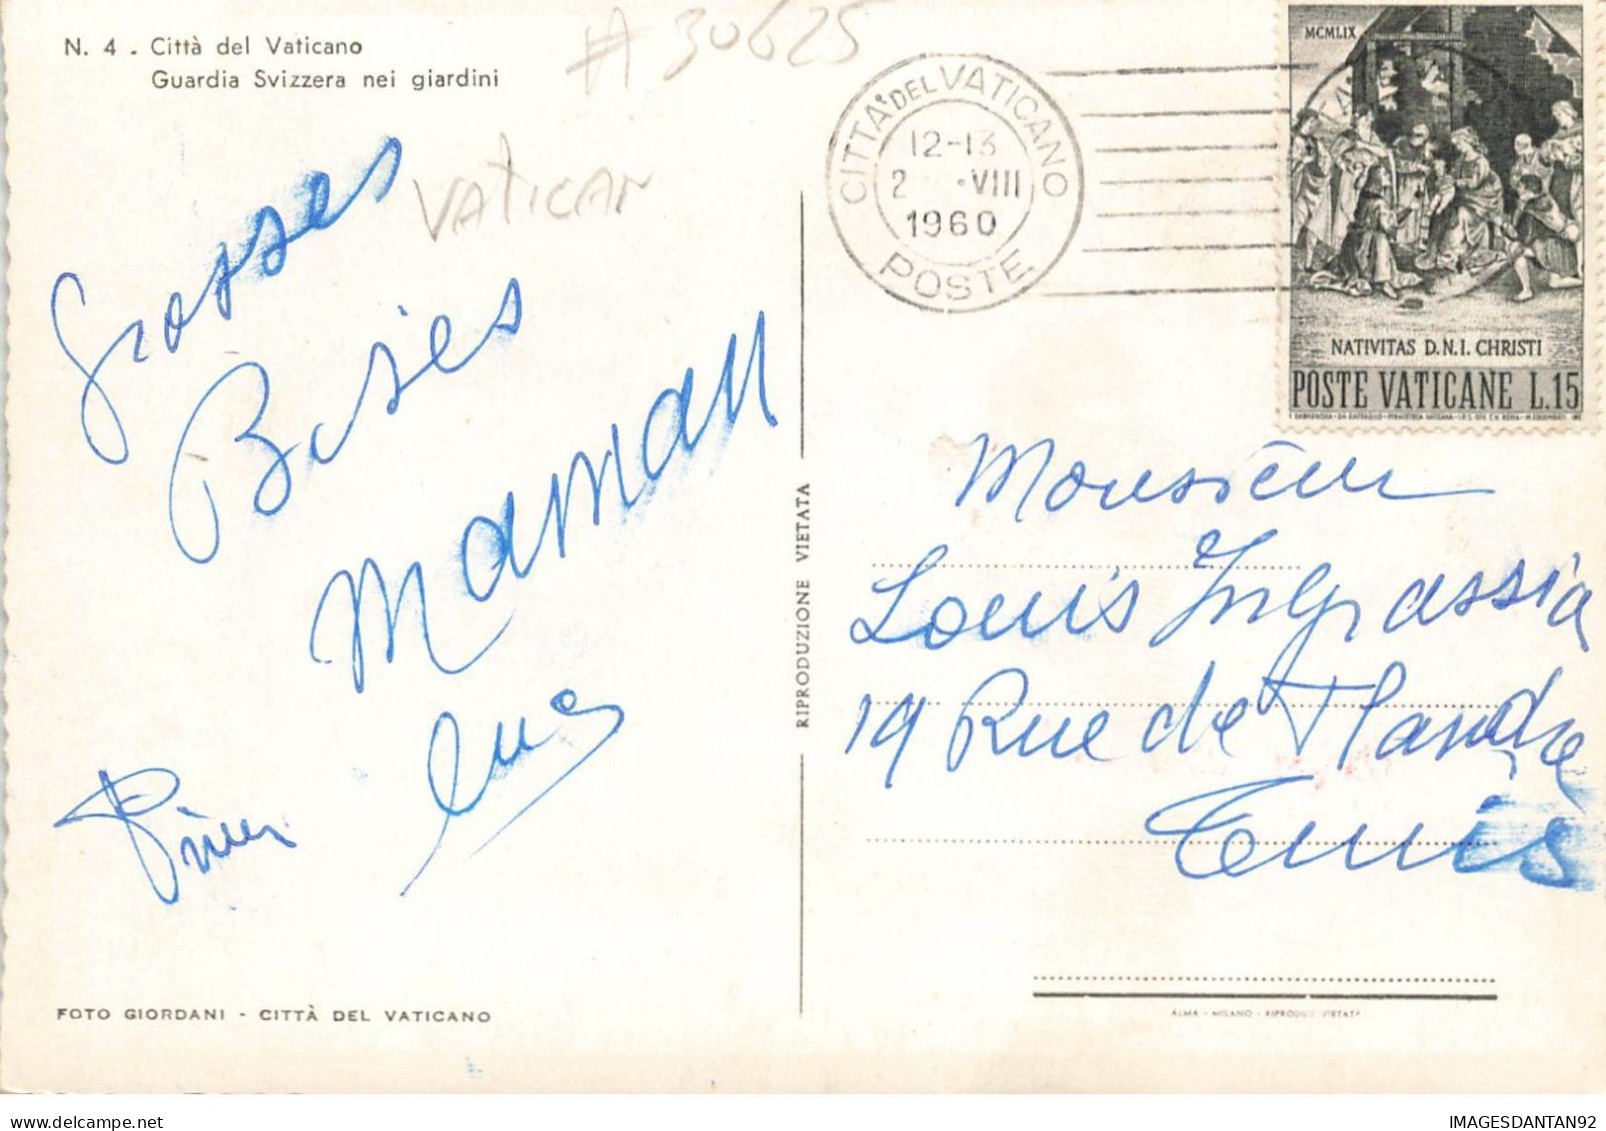 N. 4 - Città del Vaticano
Guardia Svizzera nei giardini
# 30625
VATICAN
Grosses
Bises
Maman
FOTO GIORDANI - CITTÀ DEL VATICANO
RIPRODUZIONE VIETATA
CITTA' DEL VATICANO
12-13
2 .VIII
1960
POSTE
MCMLIX
NATIVITAS D.N.I. CHRISTI
POSTE VATICANE L.15
Monsieur
Louis Ingrassia
19 Rue de Flandre
Tunis
ALMA - MILANO - RIPRODUZ. VIETATA
IMAGESDANTAN92